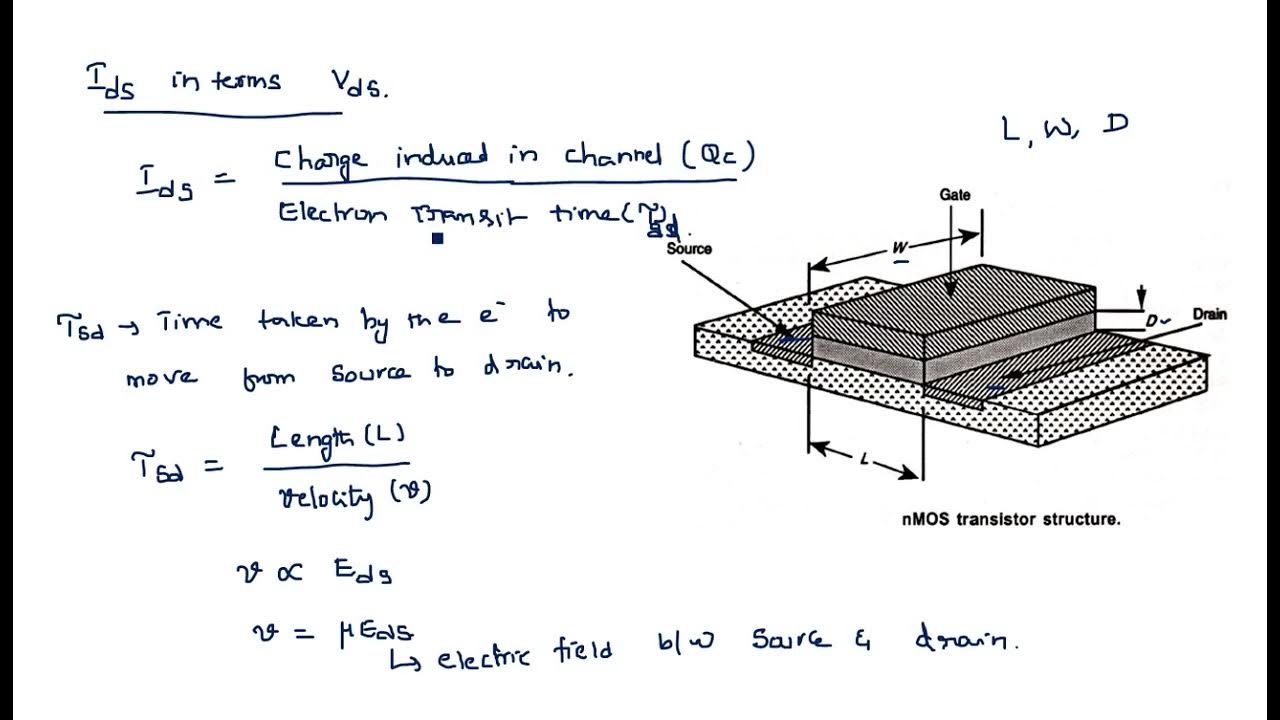 Ids in terms Vds.
L, W, D
Ids = Charge induced in channel (Qc)
Electron Transit time (τsd).
Gate
W
Source
D
Drain
τsd → Time taken by the e⁻ to
move from source to drain.
τsd = Length (L)
velocity (v)
L
nMOS transistor structure.
v ∝ Eds
v = μEds
↳ electric field b/w source & drain.